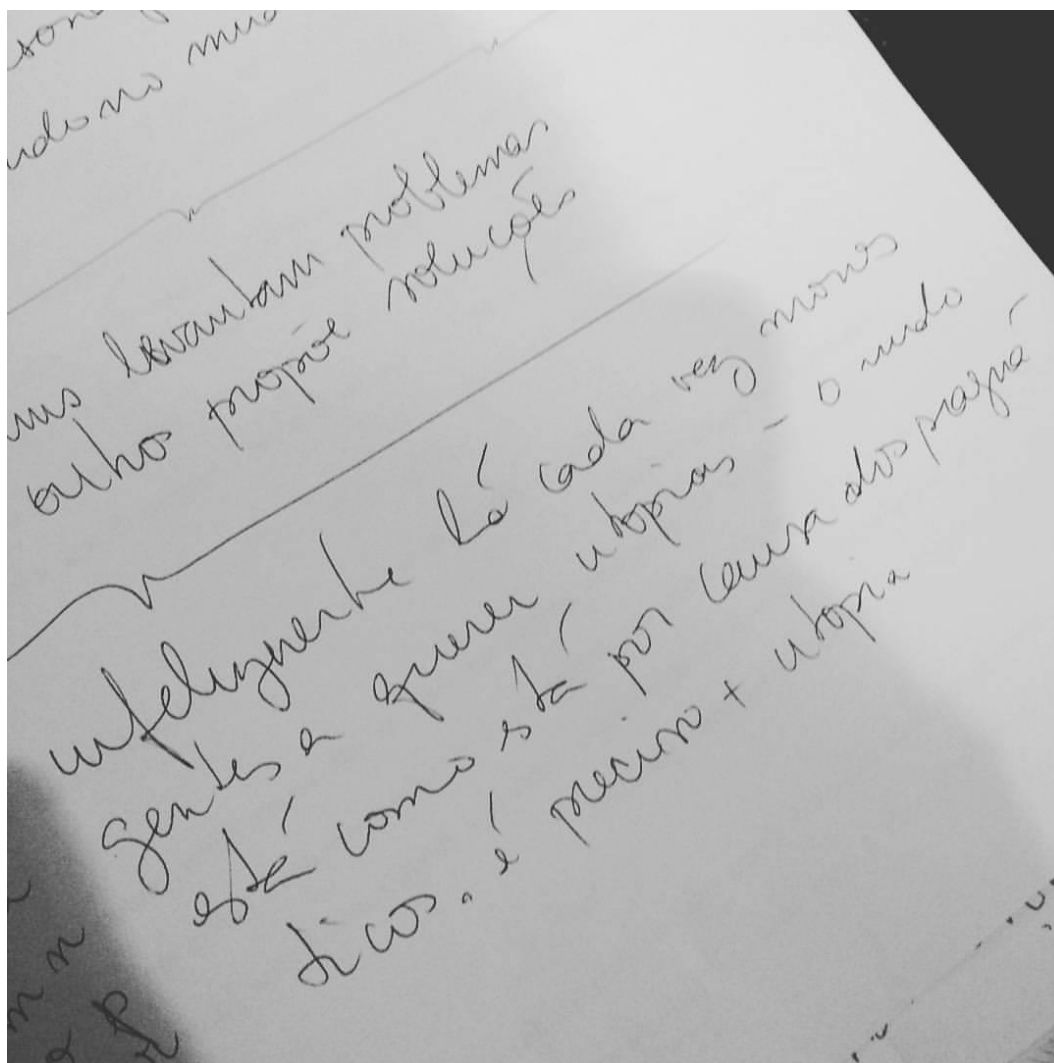 son
ndo no mu
uns levantam problemas
outros propõe soluções
infelizmente há cada vez menos
gentes a querer utopias - o mundo
está como está por causa dos pragmá-
ticos. é preciso + utopia